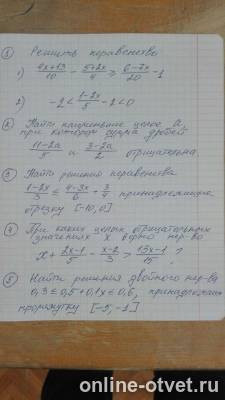 ① Решить неравенство
1) (4x+13)/10 - (5+2x)/4 ≥ (6-7x)/20 - 1
2) -2 < (1-2x)/5 - 2 < 0
② Найти наименьшее целое a,
при котором сумма дробей
(11-2a)/5 и (3-2a)/2 отрицательна
③ Найти решения неравенства
(1-2x)/3 ≤ (4-3x)/6 - 3/4 принадлежащие
отрезку [-10,0]
④ При каких целых отрицательных
значениях x верно нер-во
x + (2x-1)/5 - (x-2)/3 > (13x-1)/15 ;
⑤ Найти решения двойного нер-ва
0,3 ≤ 0,5+0,1x ≤ 0,6,
промежутку [-5,-1]
online-otvet.ru